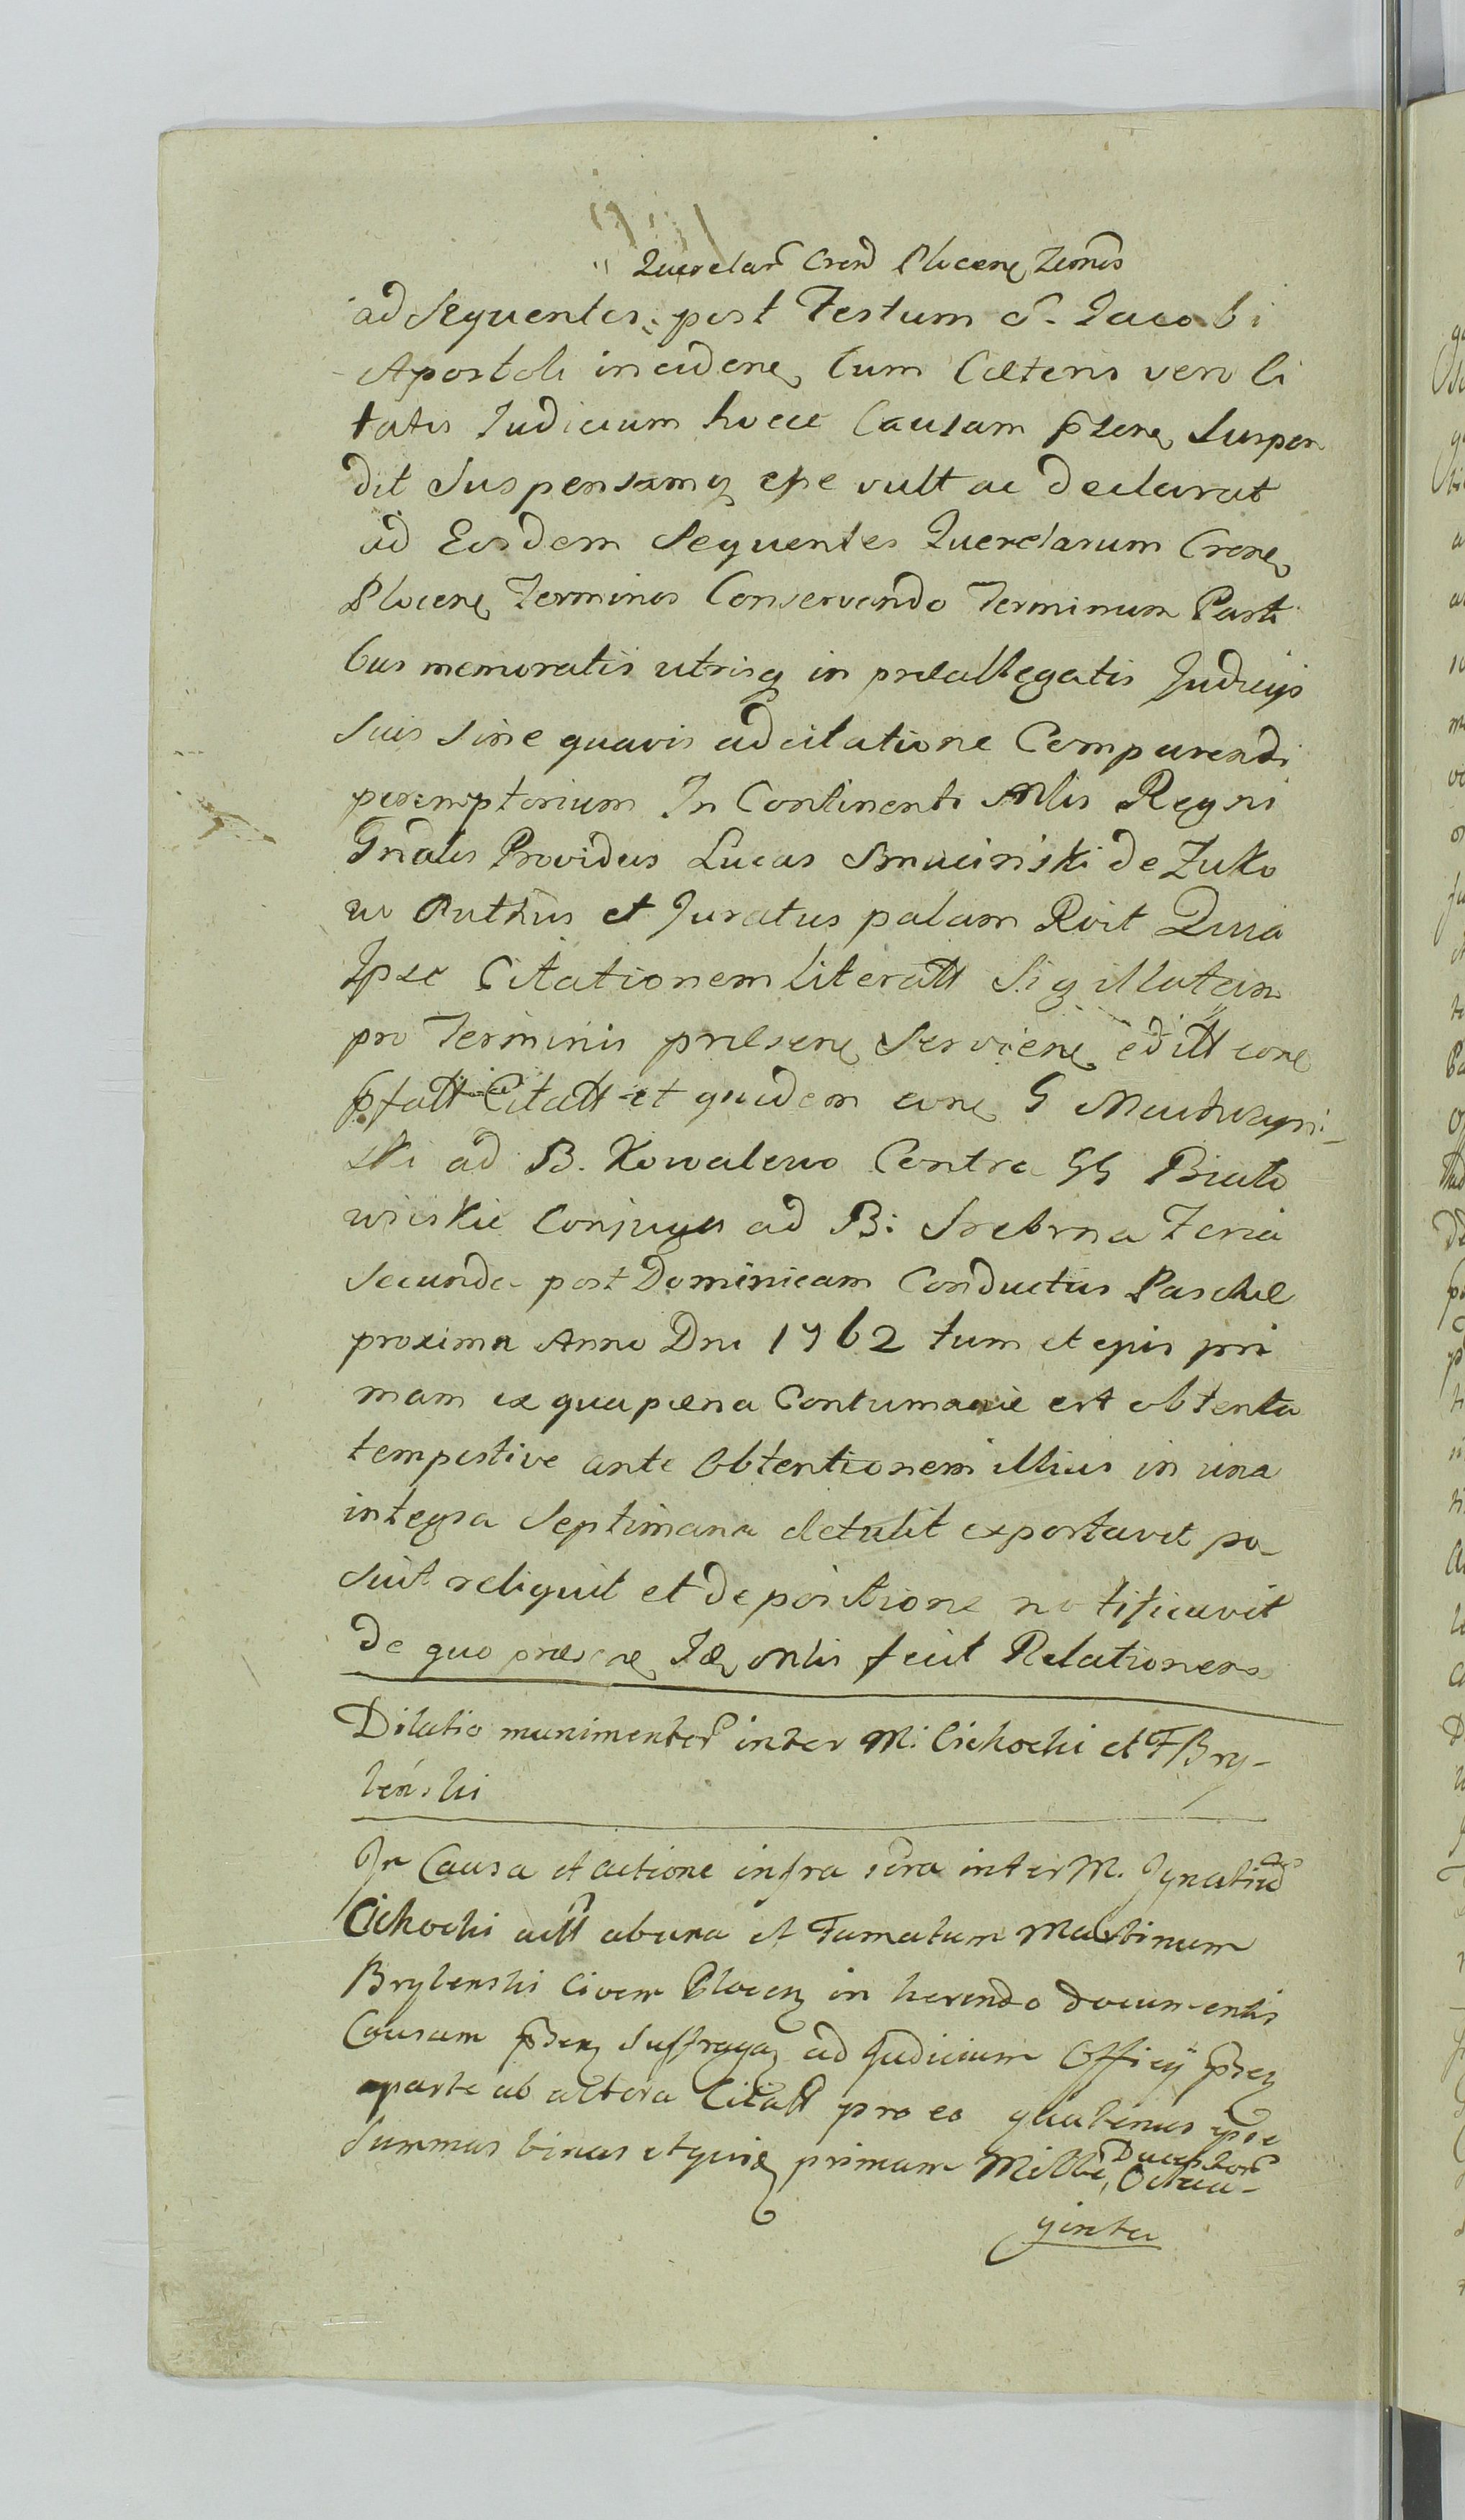 " Querelar Cren Plocens Termis
ad sequentes " post Festum S. Jacobi
Apostoli incidens, Cum Cæteris vero li
tatis Judicium hocce Causam psens Suspen
dit Suspensamq esse vult ac declarat
ad Eosdem Sequentes Querelarum Crens
Plocens Terminos Conservando Terminum Parti
bus memoratis utrisq in præallegatis Judicijs
suis sine quavis adcitatione Comparendi
peremptorium In Continenti Mlis Regni
Gnalis Providus Lucas Smucinski de Zuko
wo Authus et Juratus palam Rvit Quia
Ipse Citationem literatt Sigillatam
pro Terminis præsens Serviens editt cone
pfatt Citatt et quidem cone G
ski ad B. Kowalewo Contra GG Biało
wieskie Conjuges ad B: Srebrna Feria
Secunda post Dominicam Conductus Paschæ
proxima Anno Dni 1762 tum et ejus pri
mam ex qua pæna Contumaciæ est obtenta
tempestive ante Obtentionem illius in una
integra Septimana detulit exportavit po-
suit reliquit et de positione notificavit
de quo præsens Idq Mlis fecit Relationem
Dilatio munimentor inter M. Cichocki et F Bry-
leński
In Causa et actione infra scra inter M. Ignatiū
Cichocki actt ab una et Famatum Martinum
Brylenski Civem Plocen in herendo documentis
Causam psen suffragan ad Judicium Officij psen
parte ab altera Citatt pro eo quatenus ipse
Summas binas et quid primam Mille Ducentor Octua-
ginta